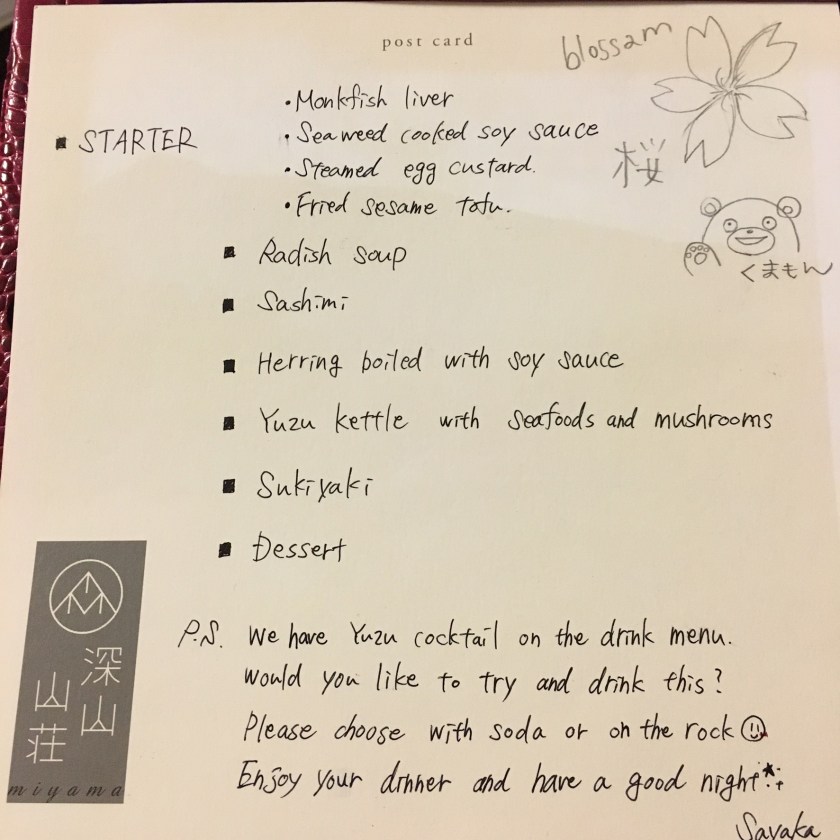 post card
blossam
・Monkfish liver
■ STARTER
・Seaweed cooked soy sauce
桜
・Steamed egg custard.
・Fried sesame tofu.
■ Radish soup
くまもん
■ Sashimi
■ Herring boiled with soy sauce
■ Yuzu kettle with seafoods and mushrooms
■ Sukiyaki
■ Dessert
P.S. We have Yuzu cocktail on the drink menu.
Would you like to try and drink this?
Please choose with soda or on the rock☺
Enjoy your dinner and have a good night
Sayaka
深山
山荘
miyama